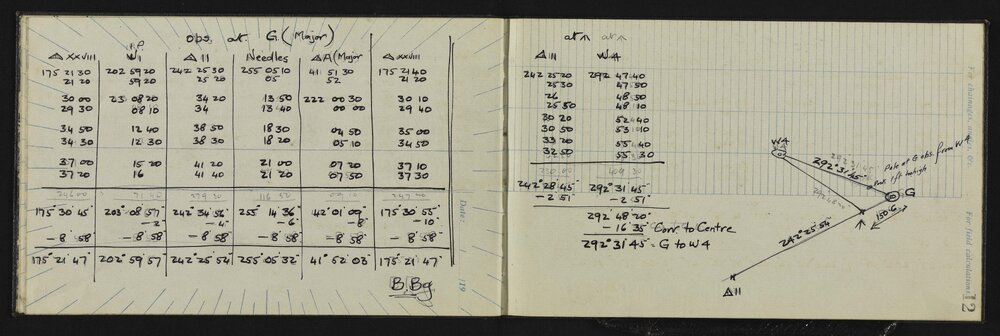 obs. at. G. (Major)
R.P.
Δ XXVIII W1 Δ 11 Needles ΔA (Major Δ XXVIII
175 21 30 202 59 20 242 25 30 255 05 10 41 51 30 175 21 40
21 20 59 20 25 20 05 52 21 20
30 00 23 08 20 34 20 13 50 222 00 30 30 10
29 30 08 10 34 13 40 00 00 29 40
34 50 12 40 38 50 18 30 04 50 35 00
34 30 12 30 38 30 18 20 05 10 34 50
37 00 15 20 41 20 21 00 07 20 37 10
37 20 16 41 40 21 20 07 50 37 30
175° 30' 45" 203° 08' 57" 242° 34' 56" 255° 14' 36" 42° 01' 09" 175° 30' 55"
-2" -4" -6" -8" -10"
-8' 58" -8' 58" -8' 58" -8' 58" -8' 58" -8' 58"
175° 21' 47" 202° 59' 57" 242° 25' 54" 255° 05' 32" 41° 52' 03" 175° 21' 47"
B. Bg
Date:
19
at ↑
Δ 11 W4
242 25 20 292 47 40
25 30 47 50
26 48 50
25 50 48 10
30 20 52 40
30 50 53 10
33 20 55 40
32 50 55 30
242° 28' 45" 292° 31' 45"
-2' 51" -2' 51"
292 48' 20"
-16' 35" Corr to Centre
292° 31' 45" = G to W4
W4
292° 31' 45"
Pole at G obs. from W4
G
150·6
242° 25' 54"
Δ 11
For field calculations,
12